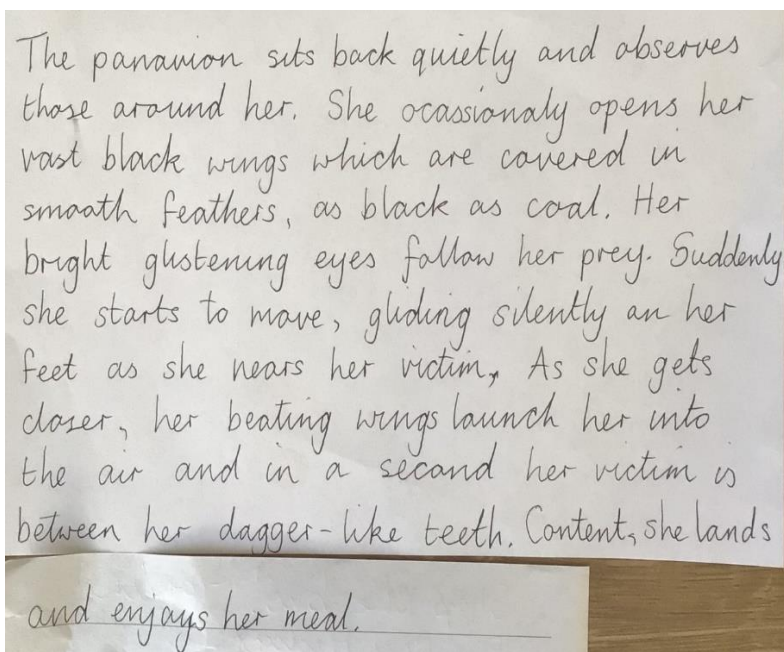 The panavion sits back quietly and observes
those around her. She ocassionaly opens her
vast black wings which are covered in
smooth feathers, as black as coal. Her
bright glistening eyes follow her prey. Suddenly
she starts to move, gliding silently on her
feet as she nears her victim, As she gets
closer, her beating wings launch her into
the air and in a second her victim is
between her dagger-like teeth. Content, she lands
and enjoys her meal.